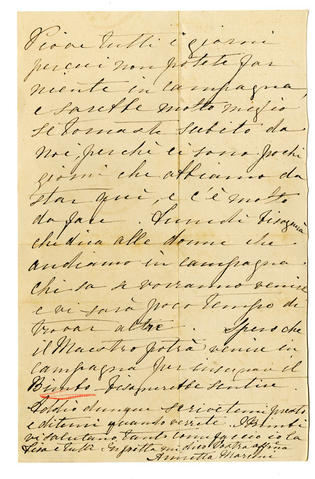 Piove tutti i giorni
percui non potete far
niente in campagna,
e sarebbe molto meglio
se tornaste subito da
noi, perchè ci sono pochi
giorni che abbiamo da
star quì, e c'è molto
da fare. Lunedì bisogna
che dica alle donne che
andiamo in campagna
chi sa se vorranno venire
e vi sarà poco tempo di
trovar altre. Spero che
il Maestro potrà venire in
campagna per insegnar il
Bisognerebbe sentire.
Addio dunque scrivetemi presto
e ditemi quando verrete. I Bimbi
vi salutano tanto come faccio io la
e tutti. In fretta mi dico Vostra
Annetta